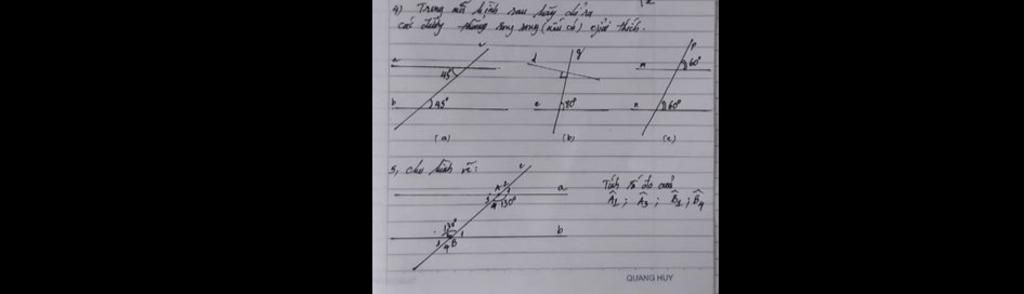 4) Trong mỗi hình sau hãy chỉ ra
các đường thẳng song song (nếu có) giải thích.
a
45°
b
45°
(a)
d
e
80°
(b)
p
m
60°
n
60°
(c)
5, cho hình vẽ:
c
A 2
3 1
4 130°
a
130°
1
3 4 B
b
Tính số đo của
Â1 ; Â3 ; B̂1 ; B̂4
QUANG HUY